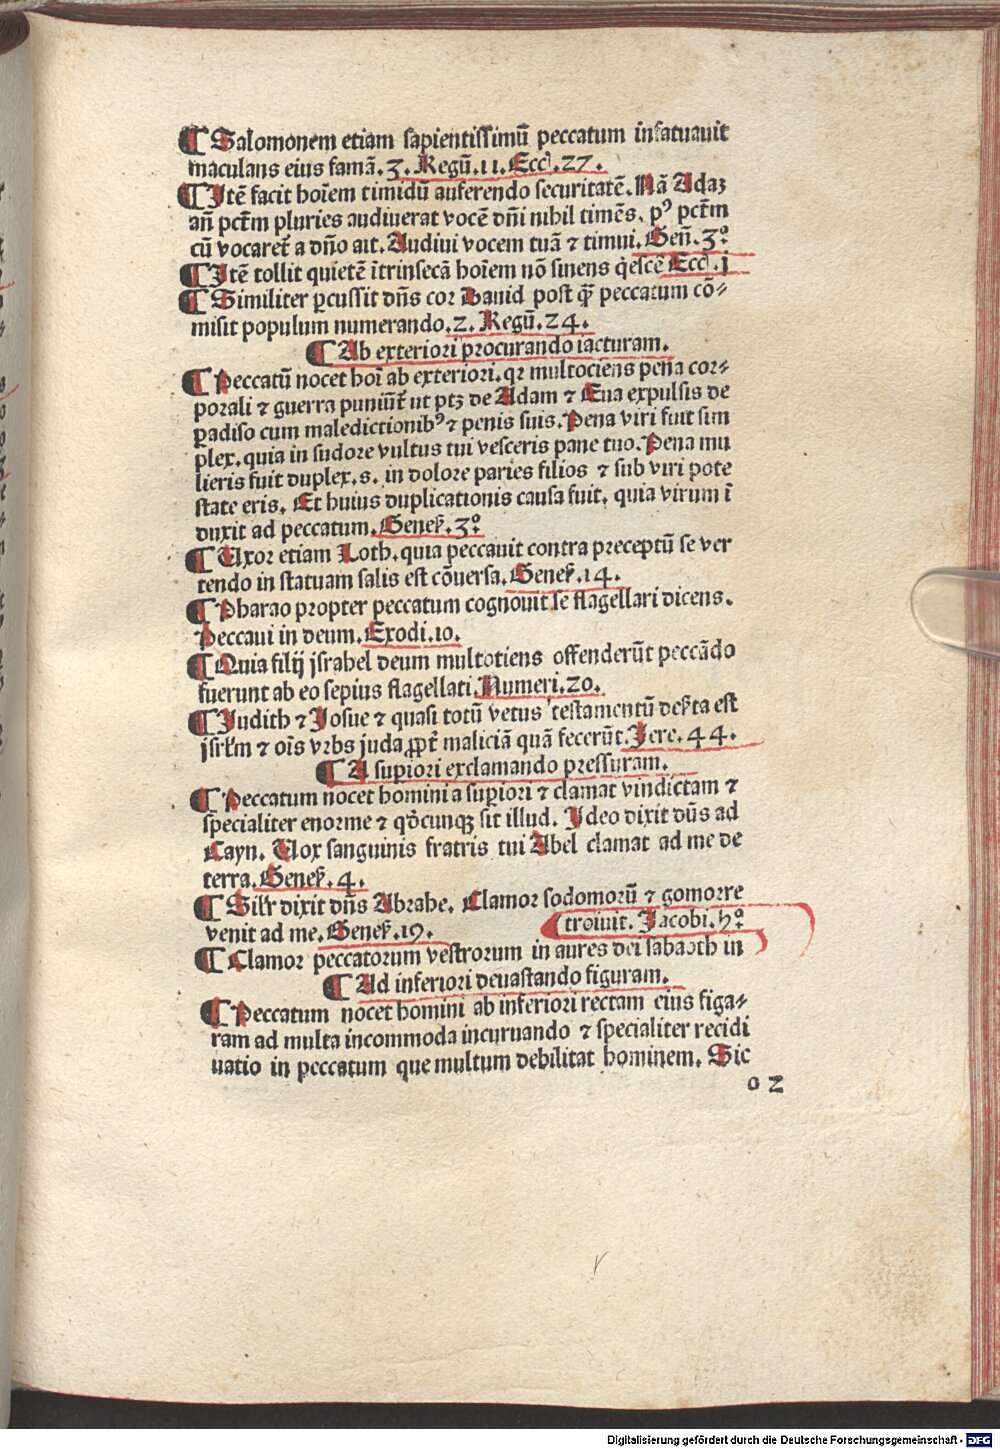 ¶ Salomonem etiam sapientissimū peccatum infatuauit
maculans eius famā. 3. Regū. 11. Eccī. 27.
¶ Itē facit hoīem timidū auferendo securitatē. Nā Adaʒ
añ pctm̄ pluries audiuerat vocē dn̄i nihil timēs. pꝰ pctm̄
cū vocaret̄ a dn̄o ait. Audiui vocem tuā ⁊ timui. Geñ. 3°
¶ Itē tollit quietē ītrinsecā hoīem nō sinens q̇escē Eccī. 1
¶ Similiter ꝑcussit dn̄s cor Dauid post qꝫ̄ peccatum cō-
misit populum numerando. 2. Regū. 24.
¶ Ab exteriori procurando iacturam.
¶ Peccatū nocet hoī ab exteriori. qꝛ multociens pena cor-
porali ⁊ guerra puniūt̄ ut ptʒ de Adam ⁊ Eua expulsis de
ꝑadiso cum maledictionibꝰ ⁊ penis suis. Pena viri fuit sim
plex. quia in sudore vultus tui vesceris pane tuo. Pena mu
lieris fuit duplex. s. in dolore paries filios ⁊ sub viri pote
state eris. Et huius duplicationis causa fuit. quia virum ī
duxit ad peccatum. Geneẜ. 3°
¶ Uxor etiam Loth. quia peccauit contra preceptū se ver
tendo in statuam salis est cōuersa. Geneẜ. 14.
¶ Pharao propter peccatum cognouit se flagellari dicens.
Peccaui in deum. Exodi. 10.
¶ Quia filij jsrahel deum multotiens offenderūt peccādo
fuerunt ab eo sepius flagellati. Numeri. 20.
¶ Judith ⁊ Josue ⁊ quasi totū vetus testamentū deẜta est
jsrlꝛm ⁊ oīs vrbs juda ꝓpt̄ maliciā quā fecerūt. Jere. 44.
¶ A suꝑiori exclamando pressuram.
¶ Peccatum nocet homini a suꝑiori ⁊ clamat vindictam ⁊
specialiter enorme ⁊ qd̄cunqꝫ sit illud. Ideo dixit dn̄s ad
Cayn. Uox sanguinis fratris tui Abel clamat ad me de
terra. Geneẜ. 4.
¶ Silꝛ dixit dn̄s Abrahe. Clamor sodomorū ⁊ gomorre
venit ad me. Geneẜ. 19. (troiuit. Jacobi. 5°
¶ Clamor peccatorum vestrorum in aures dei sabaoth in
¶ Ad inferiori deuastando figuram.
¶ Peccatum nocet homini ab inferiori rectam eius figa-
ram ad multa incommoda incuruando ⁊ specialiter recidi
uatio in peccatum que multum debilitat hominem. Sic
o 2
Digitalisierung gefördert durch die Deutsche Forschungsgemeinschaft - DFG